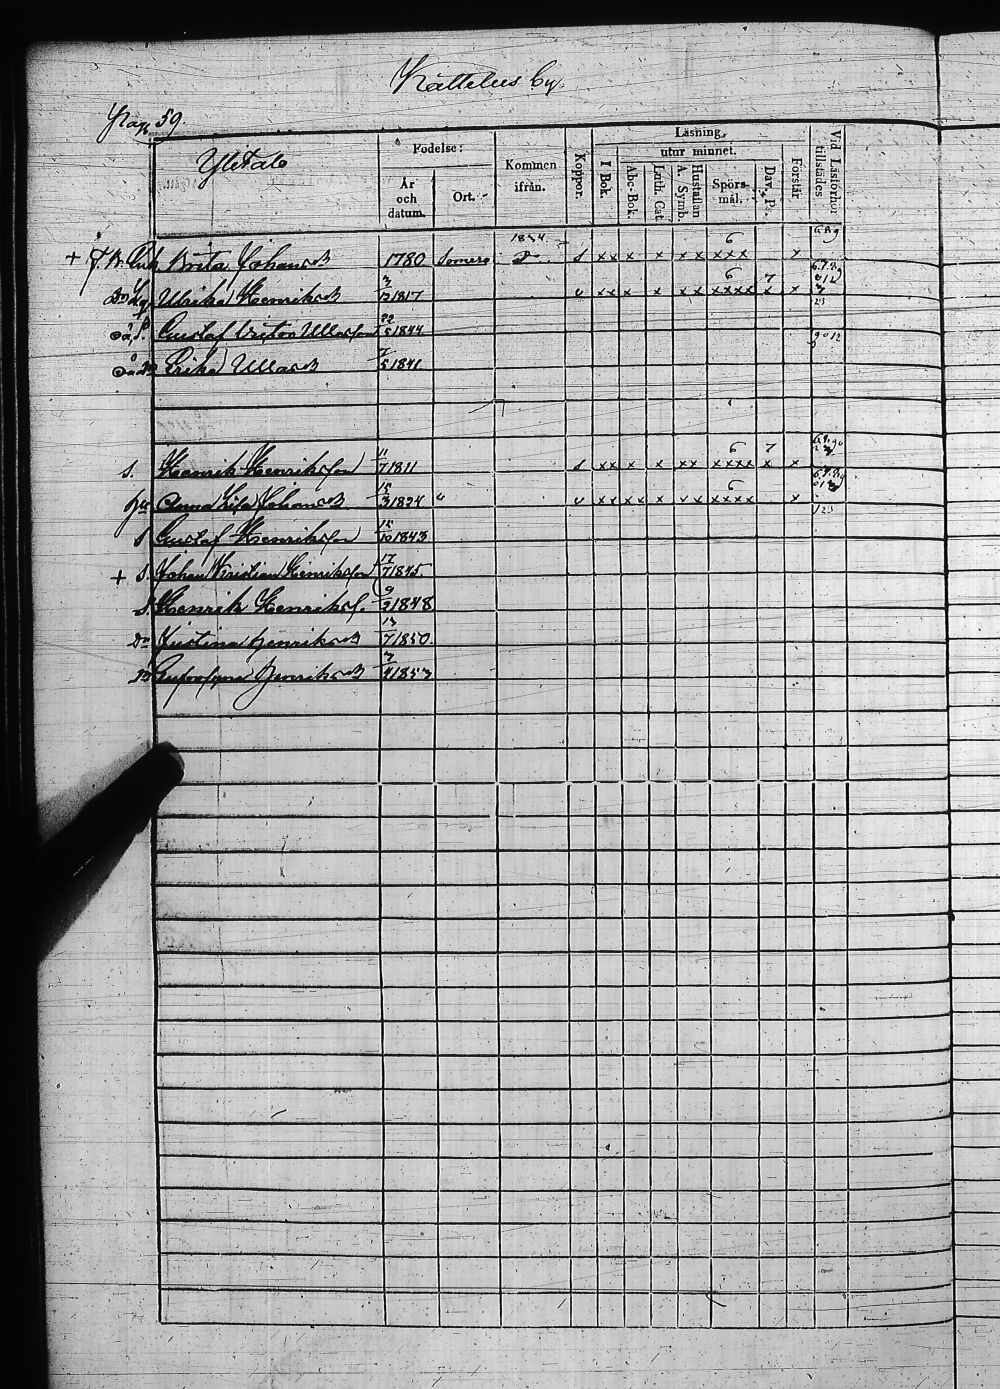 Kättelus by.
Pag. 59.
Ylitalo
Födelse:
År och datum.
Ort.
Kommen ifrån.
Koppor.
Läsning,
I Bok.
utur minnet.
Abc-Bok.
Luth. Cat.
Hustaflan A. Symb.
Spörsmål.
Dav. Ps.
Förstår
Vid Läsförhör tillstädes
1834.
+ Enk. Brita Johansd 1780 Somero s xx x x xx xxx x
6
Ulrika Henriksd 3/12 1817 v xx x x xx xxxx x x
6 7
Gustaf Victor Ullasson 22/5 1844
9012
Erika Ullasd 7/5 1841
S. Henrik Henriksson 11/7 1811 s xx x x xx xxxx x x
6 7
hu Anna Lisa Johansd 15/3 1824 " v xx xx x xx xxxx x
6
123
S Gustaf Henriksson 15/10 1843
+ S. Johan Kristian Henriksson 17/7 1845.
S Henrik Henrikss. 9/2 1848
Dr Justina Henriksd 13/7 1850.
Henriksd 3/4 1853